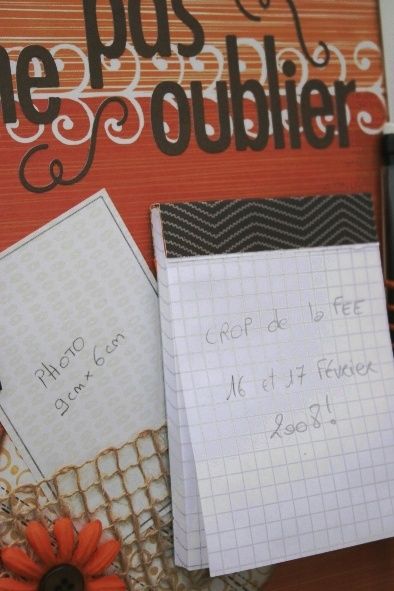 ne pas
oublier
PHOTO
9cm x 6cm
CROP de la FEE
16 et 17 Février
2008!